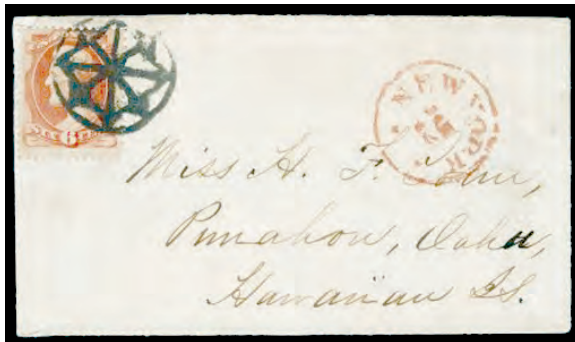 SIX 6 CENTS
NEW YORK
Miss H. F.
Punahou, Oahu,
Hawaiian Is.